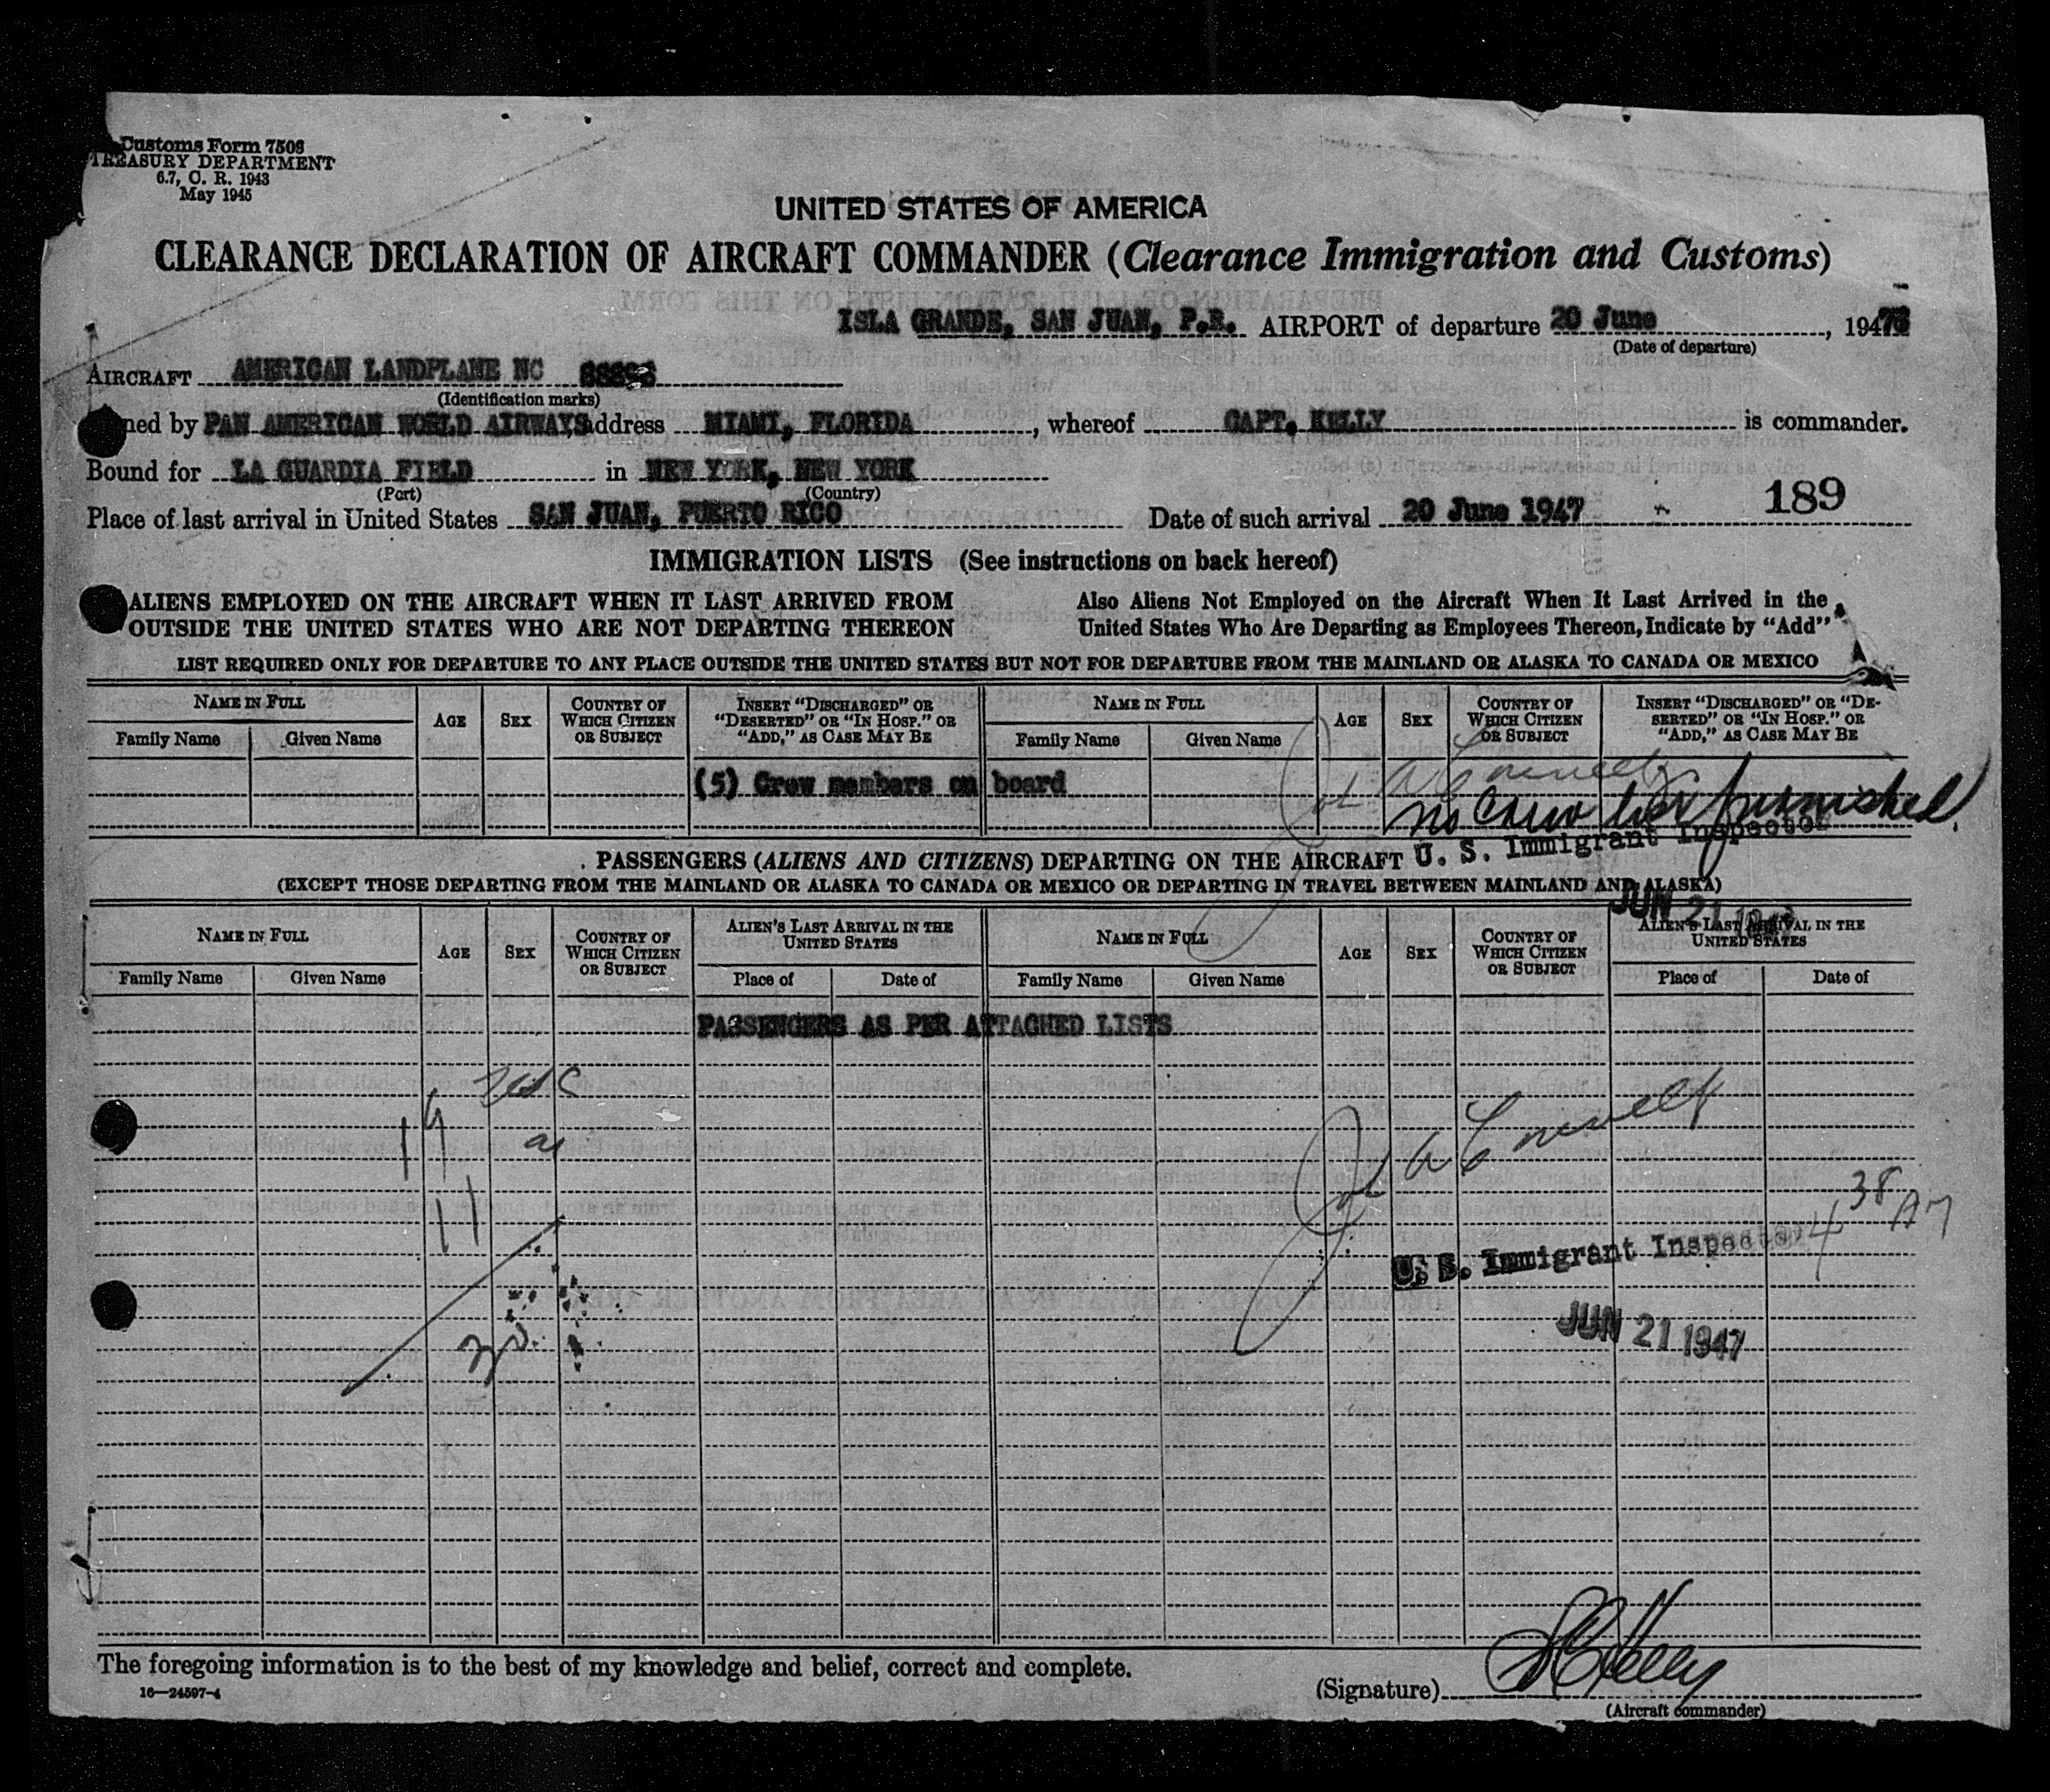 Customs Form 7506
TREASURY DEPARTMENT
6.7, C. R. 1943
May 1945
UNITED STATES OF AMERICA
CLEARANCE DECLARATION OF AIRCRAFT COMMANDER (Clearance Immigration and Customs)
ISLA GRANDE, SAN JUAN, P.R. AIRPORT of departure 20 June, 1947
(Date of departure)
AIRCRAFT AMERICAN LANDPLANE NC
(Identification marks)
ned by PAN AMERICAN WORLD AIRWAYS address MIAMI, FLORIDA, whereof CAPT. KELLY is commander.
Bound for LA GUARDIA FIELD in NEW YORK, NEW YORK
(Port) (Country)
189
Place of last arrival in United States SAN JUAN, PUERTO RICO Date of such arrival 20 June 1947
IMMIGRATION LISTS (See instructions on back hereof)
ALIENS EMPLOYED ON THE AIRCRAFT WHEN IT LAST ARRIVED FROM OUTSIDE THE UNITED STATES WHO ARE NOT DEPARTING THEREON
Also Aliens Not Employed on the Aircraft When It Last Arrived in the United States Who Are Departing as Employees Thereon, Indicate by "Add"
LIST REQUIRED ONLY FOR DEPARTURE TO ANY PLACE OUTSIDE THE UNITED STATES BUT NOT FOR DEPARTURE FROM THE MAINLAND OR ALASKA TO CANADA OR MEXICO
NAME IN FULL AGE SEX COUNTRY OF WHICH CITIZEN OR SUBJECT INSERT "DISCHARGED" OR "DESERTED" OR "IN HOSP." OR "ADD," AS CASE MAY BE NAME IN FULL AGE SEX COUNTRY OF WHICH CITIZEN OR SUBJECT INSERT "DISCHARGED" OR "DESERTED" OR "IN HOSP." OR "ADD," AS CASE MAY BE
Family Name Given Name Family Name Given Name
(5) Crew members on board
No Crew list furnished
U. S. Immigrant Inspector
PASSENGERS (ALIENS AND CITIZENS) DEPARTING ON THE AIRCRAFT
(EXCEPT THOSE DEPARTING FROM THE MAINLAND OR ALASKA TO CANADA OR MEXICO OR DEPARTING IN TRAVEL BETWEEN MAINLAND AND ALASKA)
JUN 21 1947
NAME IN FULL AGE SEX COUNTRY OF WHICH CITIZEN OR SUBJECT ALIEN'S LAST ARRIVAL IN THE UNITED STATES NAME IN FULL AGE SEX COUNTRY OF WHICH CITIZEN OR SUBJECT ALIEN'S LAST ARRIVAL IN THE UNITED STATES
Family Name Given Name Place of Date of Family Name Given Name Place of Date of
PASSENGERS AS PER ATTACHED LISTS
19
11
4 38 AM
U. S. Immigrant Inspector
JUN 21 1947
30
The foregoing information is to the best of my knowledge and belief, correct and complete.
16—24597-4
(Signature) Kelly
(Aircraft commander)